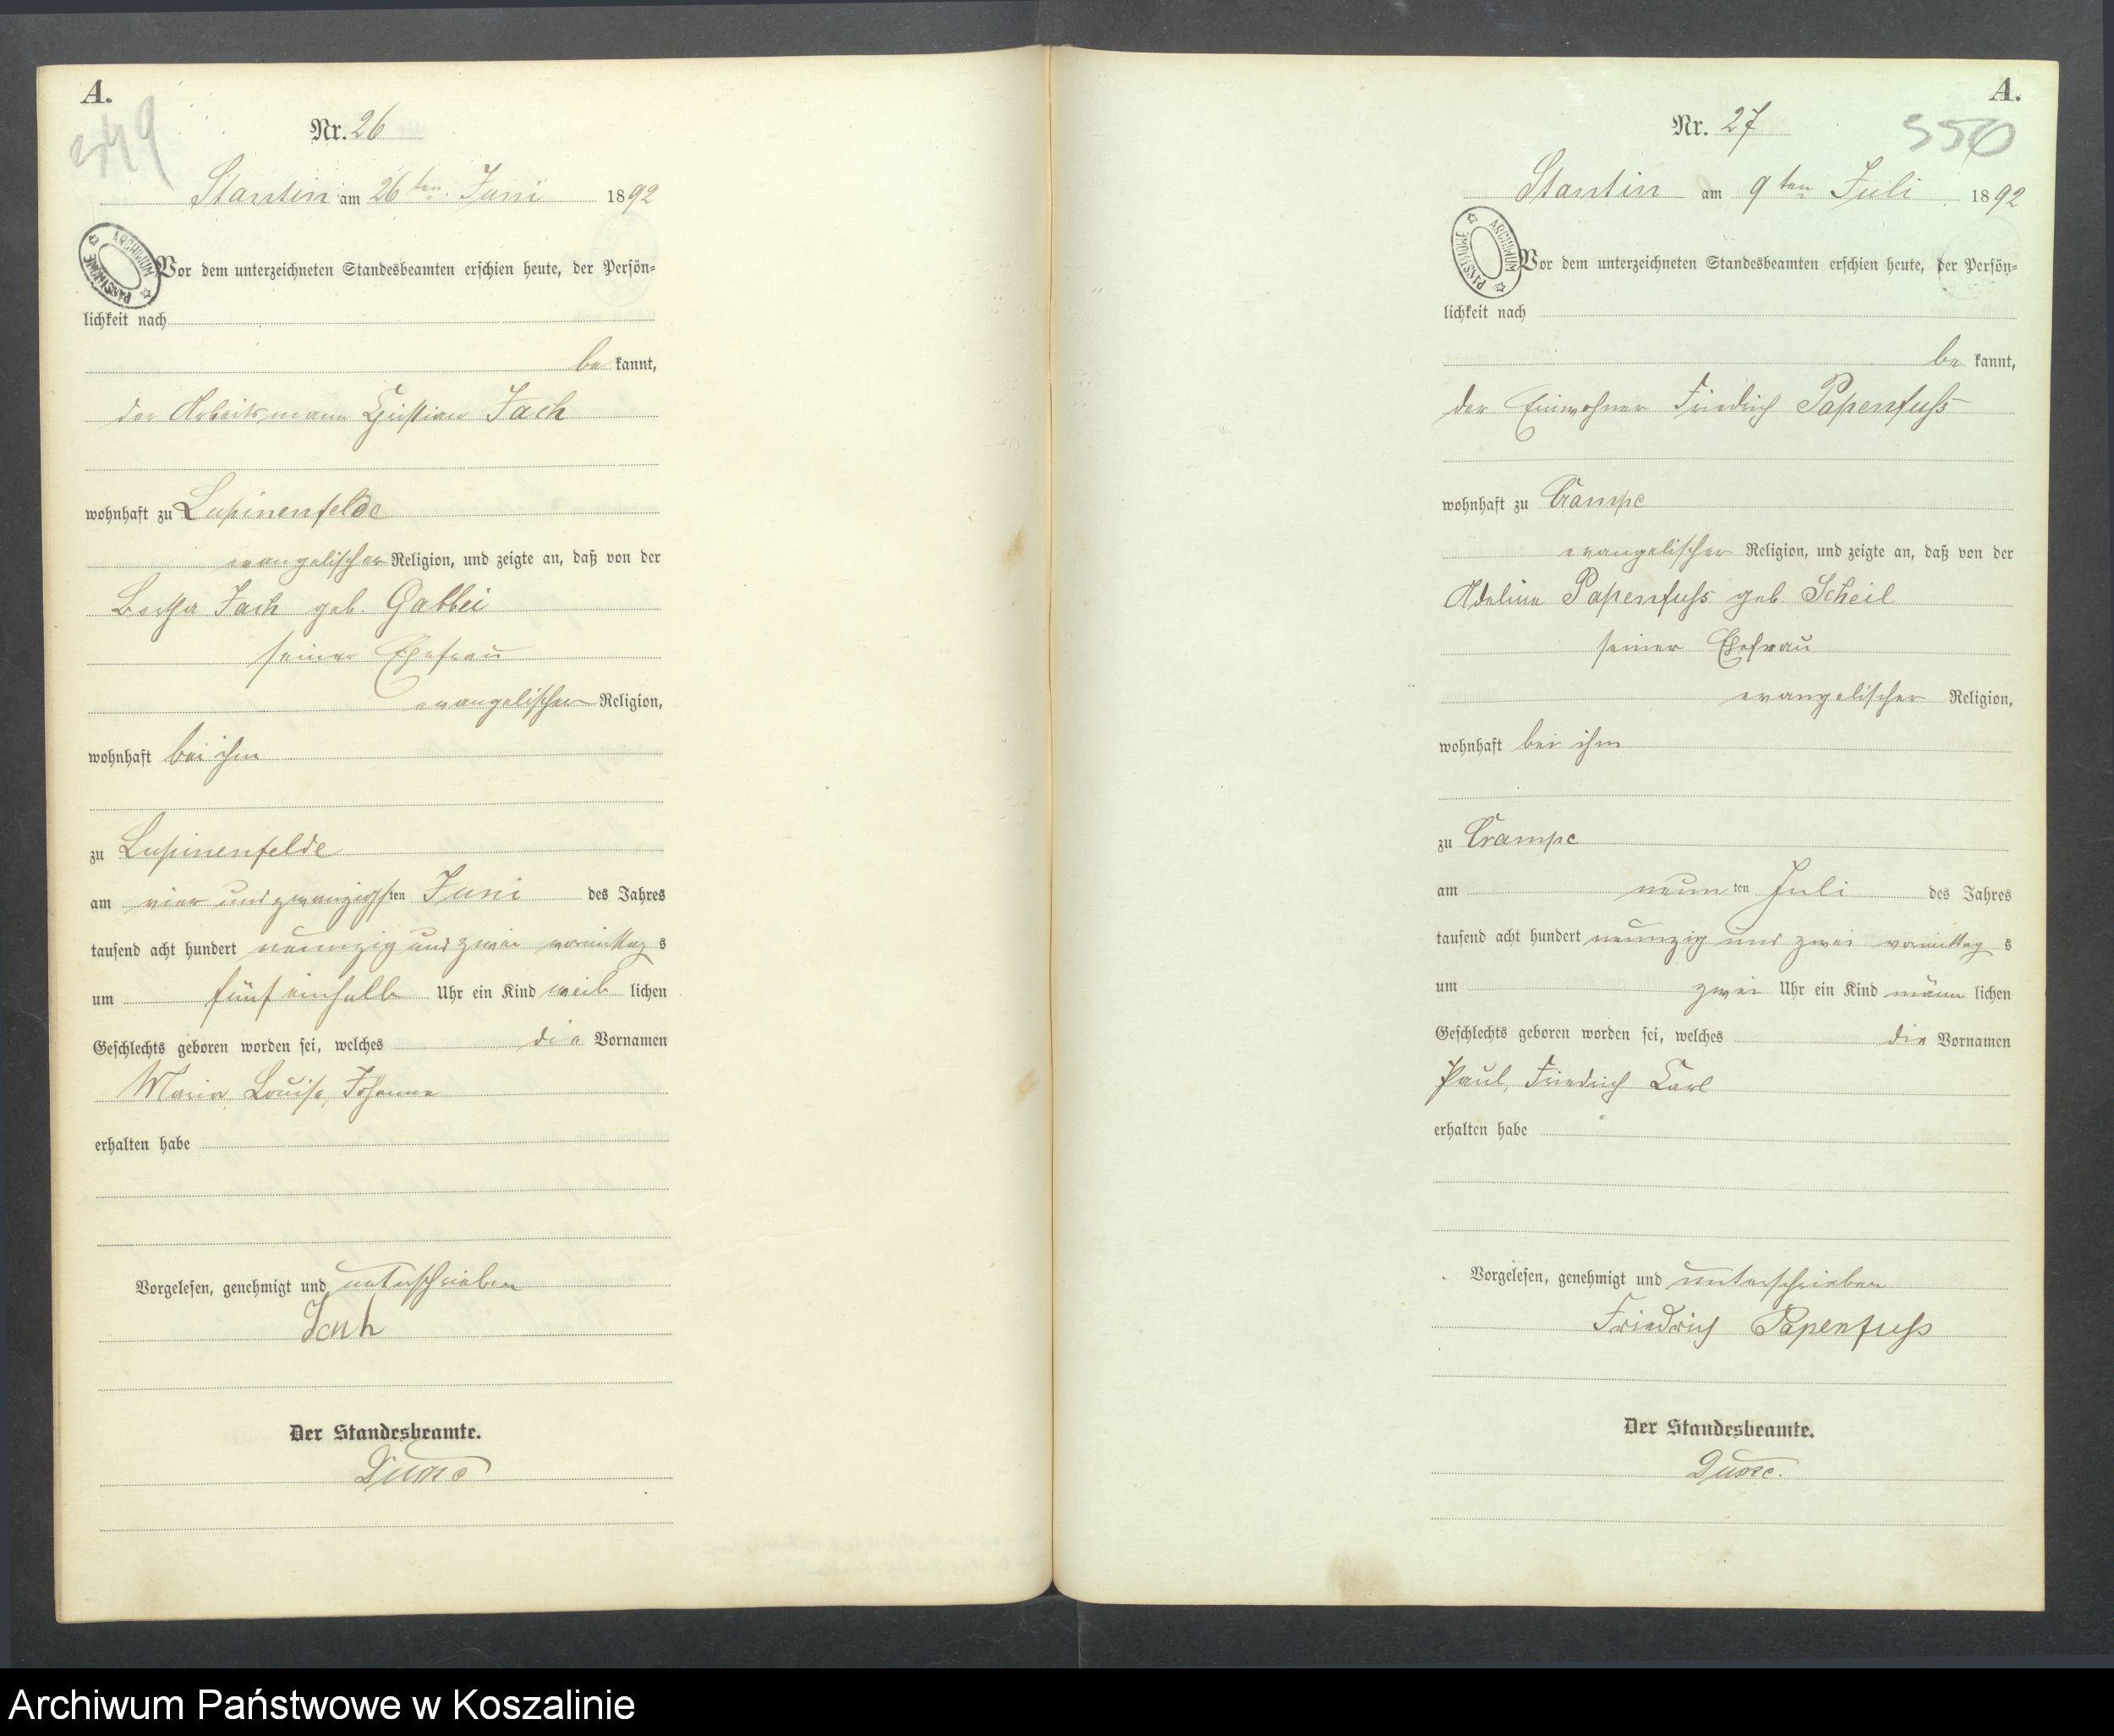 A.
349
Nr. 26
Stantin am 26ten Juni 1892
ARCHIWUM PAŃSTWOWE
Vor dem unterzeichneten Standesbeamten erschien heute, der Persön=
lichkeit nach
be kannt,
der Arbeitsmann Christian Jach
wohnhaft zu Lupinenfelde
evangelischer Religion, und zeigte an, daß von der
Bertha Jach geb. Gabbei
seiner Ehefrau
evangelischer Religion,
wohnhaft bei ihm
zu Lupinenfelde
am vier und zwanzigsten Juni des Jahres
tausend acht hundert neunzig und zwei vormittag s
um fünf einhalb Uhr ein Kind weib lichen
Geschlechts geboren worden sei, welches die Vornamen
Maria, Louise, Johanne
erhalten habe
Vorgelesen, genehmigt und unterschrieben
Jach
Der Standesbeamte.
A.
350
Nr. 27
Stantin am 9ten Juli 1892
ARCHIWUM PAŃSTWOWE
Vor dem unterzeichneten Standesbeamten erschien heute, der Persön=
lichkeit nach
be kannt,
der Einwohner Friedrich Papenfuß
wohnhaft zu Crampe
evangelischer Religion, und zeigte an, daß von der
Adeline Papenfuß geb. Scheil
seiner Ehefrau
evangelischer Religion,
wohnhaft bei ihm
zu Crampe
am neun ten Juli des Jahres
tausend acht hundert neunzig und zwei vormittag s
um zwei Uhr ein Kind männ lichen
Geschlechts geboren worden sei, welches die Vornamen
Paul, Friedrich Carl
erhalten habe
Vorgelesen, genehmigt und unterschrieben
Friedrich Papenfuß
Der Standesbeamte.
Archiwum Państwowe w Koszalinie